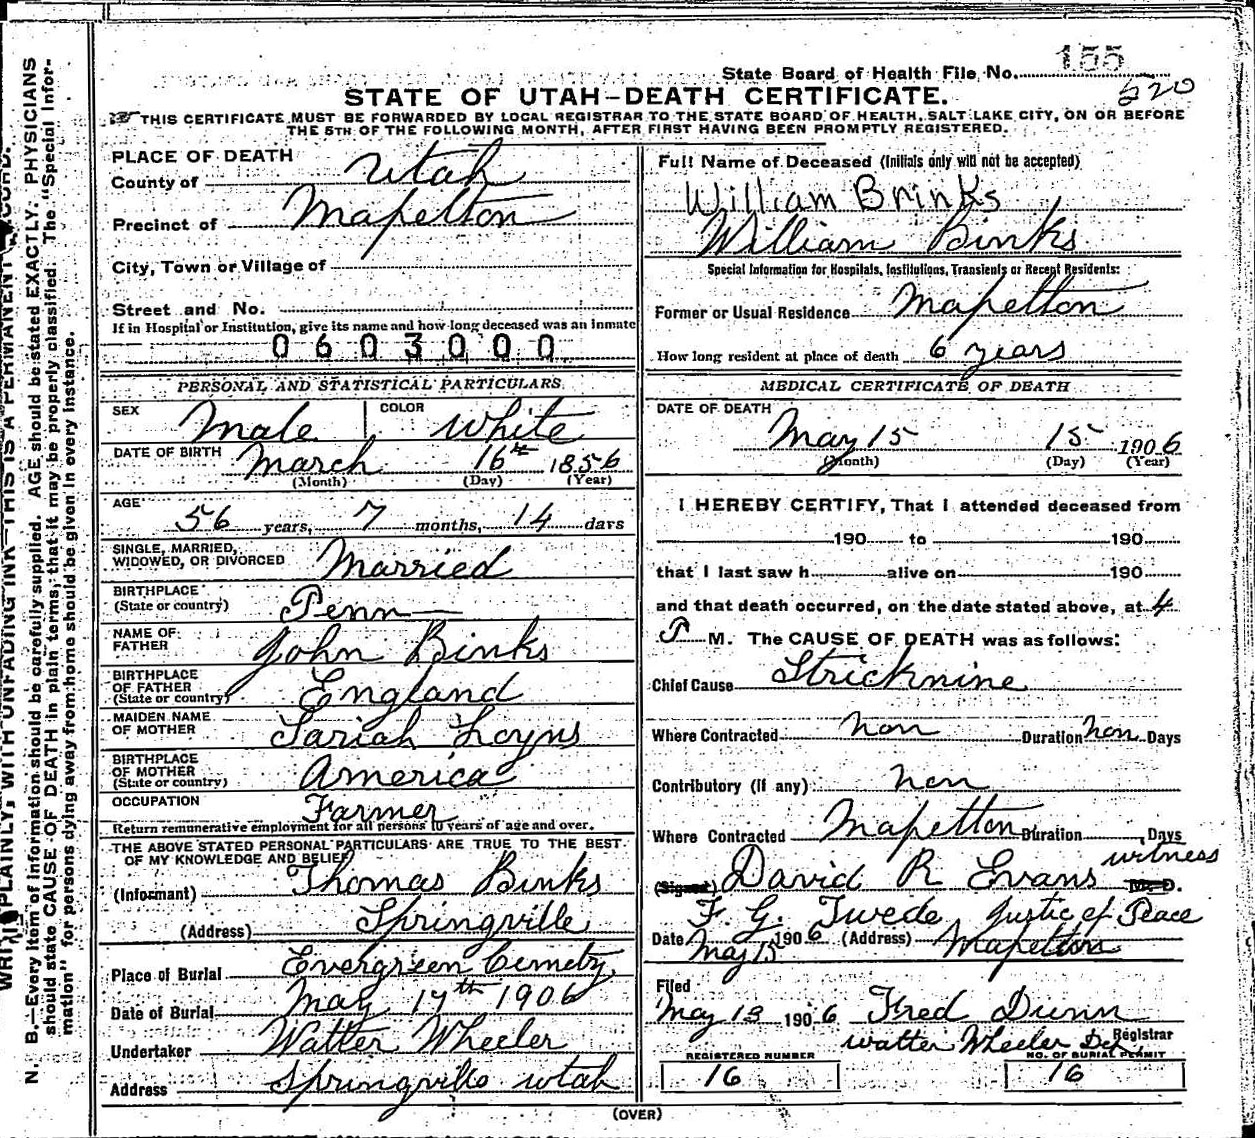 State Board of Health File No. 155
520
STATE OF UTAH—DEATH CERTIFICATE.
THIS CERTIFICATE MUST BE FORWARDED BY LOCAL REGISTRAR TO THE STATE BOARD OF HEALTH, SALT LAKE CITY, ON OR BEFORE
THE 5TH OF THE FOLLOWING MONTH, AFTER FIRST HAVING BEEN PROMPTLY REGISTERED.
PLACE OF DEATH
County of Utah
Precinct of Mapelton
City, Town or Village of
Street and No.
If in Hospital or Institution, give its name and how long deceased was an inmate
0603000
PERSONAL AND STATISTICAL PARTICULARS
SEX Male COLOR White
DATE OF BIRTH March 16th 1856
(Month) (Day) (Year)
AGE 56 years, 7 months, 14 days
SINGLE, MARRIED,
WIDOWED, OR DIVORCED Married
BIRTHPLACE
(State or country) Penn—
NAME OF
FATHER John Binks
BIRTHPLACE
OF FATHER
(State or country) England
MAIDEN NAME
OF MOTHER Sariah Loyns
BIRTHPLACE
OF MOTHER
(State or country) America
OCCUPATION Farmer
Return remunerative employment for all persons 10 years of age and over.
THE ABOVE STATED PERSONAL PARTICULARS ARE TRUE TO THE BEST
OF MY KNOWLEDGE AND BELIEF
(Informant) Thomas Binks
(Address) Springville
Place of Burial Evergreen Cemety
Date of Burial May 17th 1906
Undertaker Walter Wheeler
Address Springville Utah
Full Name of Deceased (Initials only will not be accepted)
William Brinks
William Binks
Special Information for Hospitals, Institutions, Transients or Recent Residents:
Former or Usual Residence Mapelton
How long resident at place of death 6 years
MEDICAL CERTIFICATE OF DEATH
DATE OF DEATH
May 15 15 1906
(Month) (Day) (Year)
I HEREBY CERTIFY, That I attended deceased from
190 to 190
that I last saw h alive on 190
and that death occurred, on the date stated above, at 4
P M. The CAUSE OF DEATH was as follows:
Chief Cause Stricknine
Where Contracted non Duration non Days
Contributory (if any) non
Where Contracted Mapelton Duration Days
witness
(Signed) David R Evans M. D.
F. G. Twede Justic of Peace
Date May 15 1906 (Address) Mapelton
Filed
May 13 1906 Fred Dunn
Walter Wheeler Dep Registrar
REGISTERED NUMBER
16
NO. OF BURIAL PERMIT
16
(OVER)
WRITE PLAINLY, WITH UNFADING INK—THIS IS A PERMANENT RECORD.
N. B.—Every item of information should be carefully supplied. AGE should be stated EXACTLY. PHYSICIANS
should state CAUSE OF DEATH in plain terms, that it may be properly classified. The "Special Infor-
mation" for persons dying away from home should be given in every instance.